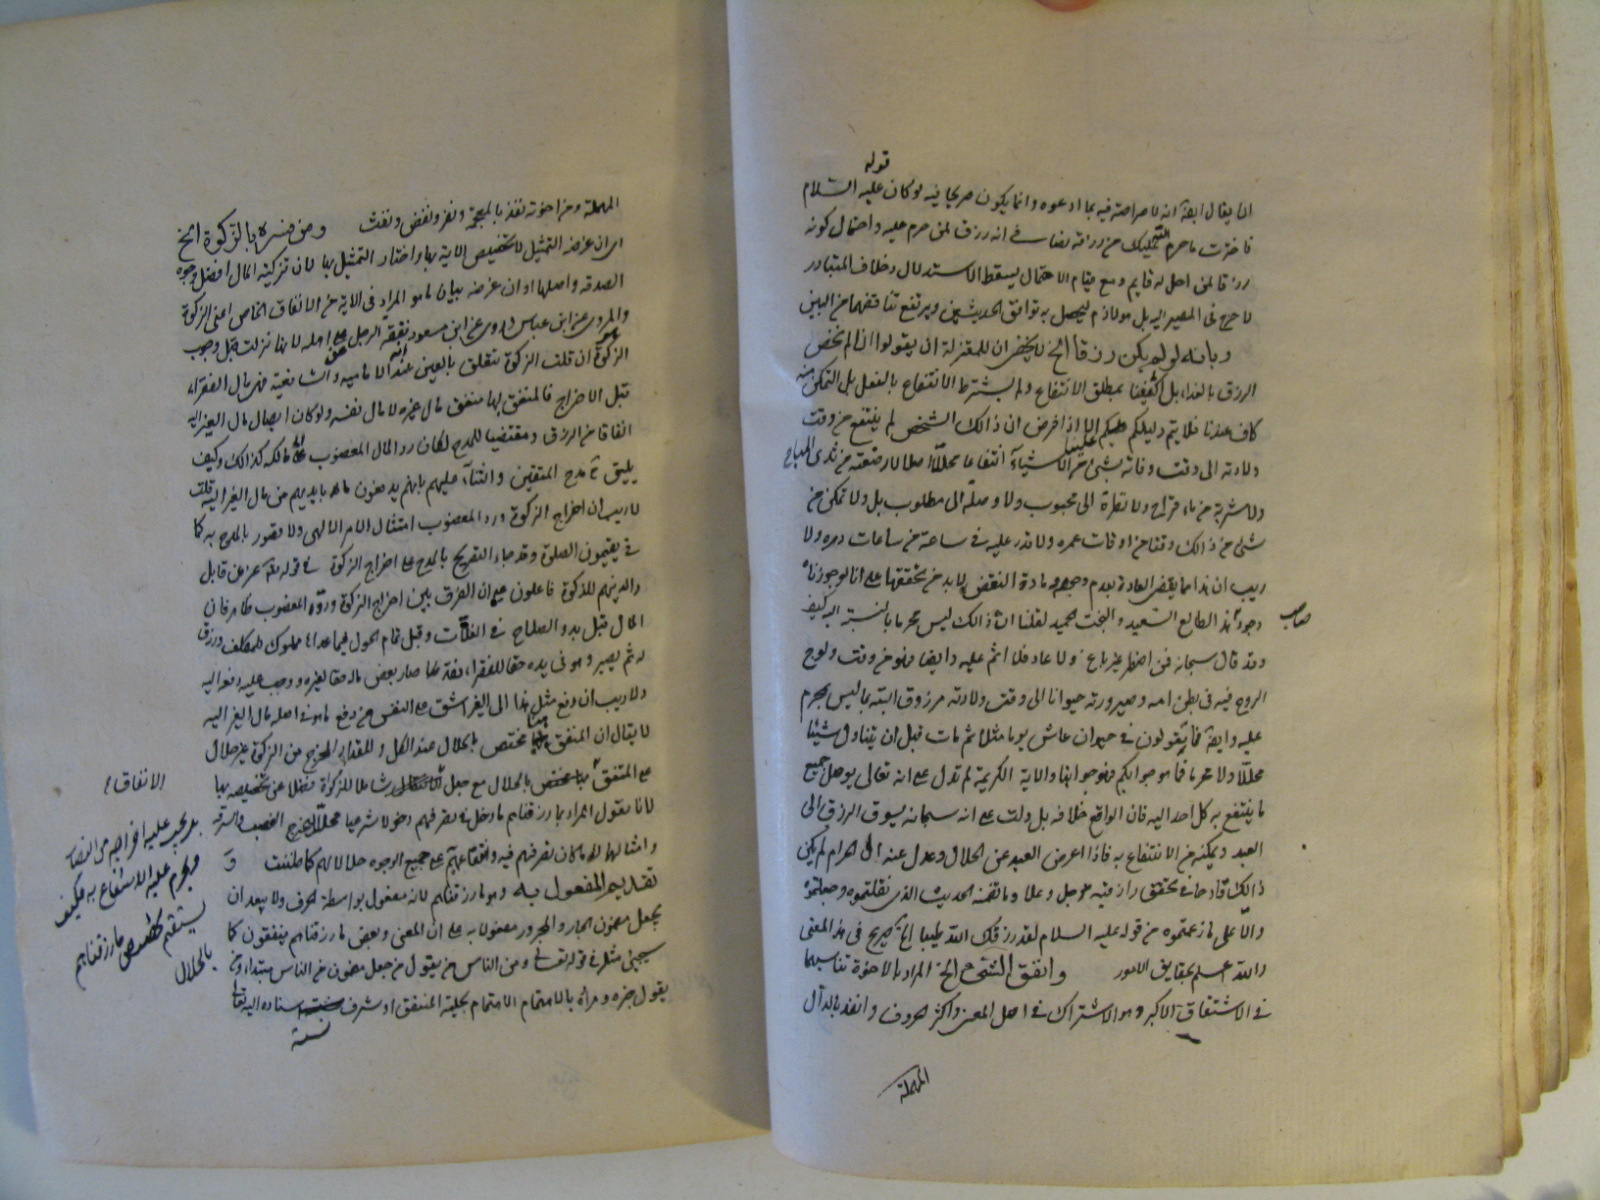 قوله
ان يقال ايضا انه لا صراحة فيه بما ادعوه وانما يكون صريحا فيه لو كان عليه السلام
فاخترت ما حرم الله عليك من رزقه نصا في انه رزق لمن حرم عليه واحتمال كونه
رزقا لمن احل له قايم ومع قيام الاحتمال يسقط الاستدلال وخلاف المتبادر
لا حرج في المصير اليه بل هو لازم ليحصل به توافق الحديثين ويرتفع تناقضهما من البين
وبانه لو لم يكن رزقا الخ لا يخفى ان للمعتزلة ان يقولوا انا لم نخص
الرزق بالغذاء بل اكتفينا بمطلق الانتفاع ولم يشترط الانتفاع بالفعل بل التمكن منه
كاف عندنا فلا يتم دليلكم علينا الا اذا فرض ان ذلك الشخص لم ينتفع من وقت
ولادته الى وقت وفاته بشئ من الاشياء انتفاعا محللا اصلا لا رضعة من ثدي المباح
ولا شربة من ماء قراح ولا نظرة الى محبوب ولا وصلة الى مطلوب بل ولا تمكن من
شئ من ذلك وقتا من اوقات عمره ولا قدر عليه في ساعة من ساعات دهره ولا
ريب ان هذا مما يقضى العادة بعدم وجوده ومادة النقض لا بد من تحققها على انا لو جوزنا
وجود هذا الطالع السعيد والبخت الحميد لقلنا ان ذلك ليس محرما بالنسبة اليه كيف
صاحب
وقد قال سبحانه فمن اضطر غير باغ ولا عاد فلا اثم عليه وايضا فهو من وقت ولوج
الروح فيه في بطن امه وصيرورته حيوانا الى وقت ولادته مرزوق البتة بما ليس بمحرم
عليه وايضا فما يقولون في حيوان عاش يوما مثلا ثم مات قبل ان يتناول شيئا
محللا ولا محرما فما هو جوابكم فهو جوابنا والاية الكريمة لم تدل على انه تعالى يوصل جميع
ما ينتفع به كل احد اليه فان الواقع خلافه بل دلت على انه سبحانه يسوق الرزق الى
العبد ويمكنه من الانتفاع به فاذا اعرض العبد عن الحلال وعدل عنه الى الحرام لم يكن
ذلك قادحا في تحقق رازقيته عز وجل وعلا وما تضمنه الحديث الذي نقلتموه وجعلتموه
دالا على ما زعمتموه من قوله عليه السلام لقد رزقك الله طيبا الخ صريح في هذا المعنى
والله اعلم بحقايق الامور وانفق الشئ الخ المراد بالاخوة تناسبهما
في الاشتقاق الاكبر وهو الاشتراك في اصل المعنى واكثر الحروف وانفد بالدال
المهملة
المهملة ومن اخوته نفذ بالمعجمة ونفر ونفض ونفث ومن فسره بالزكوة الخ
اى ان غرضه التمثيل لا تخصيص الاية بها واختار التمثيل بها لان تزكية المال افضل وجوه
الصدقة واصلها او ان غرضه بيان ما هو المراد في الاية من الانفاق الخاص اعنى الزكوة
والمروى عن ابن عباس وروى عن ابن مسعود نفقة الرجل على اهله لانها نزلت قبل وجوب
الزكوة ان قلت الزكوة تتعلق بالعين عند الامامية والشافعية فهى مال الفقراء
قبل الاخراج فالمنفق لها منفق مال غيره لا مال نفسه ولو كان ايصال مال الغير اليه
انفاقا من الرزق ومقتضيا للمدح لكان رد المال المغصوب الى مالكه كذلك وكيف
يليق مدح المتقين والثناء عليهم بانهم يدفعون ما بايديهم من مال الغير اليه قلت
لا ريب ان اخراج الزكوة ورد المغصوب امتثال الامر الالهى ولا قصور بالمدح به كما
في يقيمون الصلوة وقد جاء التصريح بالمدح على اخراج الزكوة في قوله عز من قائل
والذينهم للزكوة فاعلون على ان الفرق بين اخراج الزكوة ورد المغصوب ظاهر فان
المال قبل بدو الصلاح في الغلات وقبل تمام الحول فيما عداها مملوك للمكلف ورزق
له ثم يصير وهو في يده حقا للفقراء فقد صار بعض ماله حقا لغيره ووجب عليه دفعه اليه
ولا ريب ان دفع مثل هذا الى الغير اشق على النفس من دفع ما هو في اصله مال الغير اليه
لا يقال ان المنفق هنا مختص بالحلال عند الكل والمقدار المخرج من الزكوة غير حلال
على المنفق بالحلال مع جعل شاملا للزكوة فضلا عن تخصيصه بها
الانفاق
بل يجب عليه اخراجه من النصاب
ويحرم عليه الانتفاع به فكيف
يستقيم تخصيص ما رزقناهم
بالحلال
لانا نقول المراد بما رزقناهم ما دخل في تصرفهم دخولا شرعيا محللا الغصب والسرقة
وامثالهما لا ما كان تصرفهم فيه وانتفاعهم على جميع الوجوه حلالا لهم كما ظننت و
تقديم المفعول به وهو ما رزقناهم لانه مفعول بواسطة الحرف ولا يبعد ان
يجعل مضمون الجار والمجرور مفعولا به على ان المعنى وبعض ما رزقناهم ينفقون كما
سيجئ مثله في قوله تعالى ومن الناس من يقول من جعل مضمون من الناس مبتدا ومن
يقول خبره ومراده بالاهتمام الاهتمام بحلية المنفق او شرف اسناده اليه تعالى